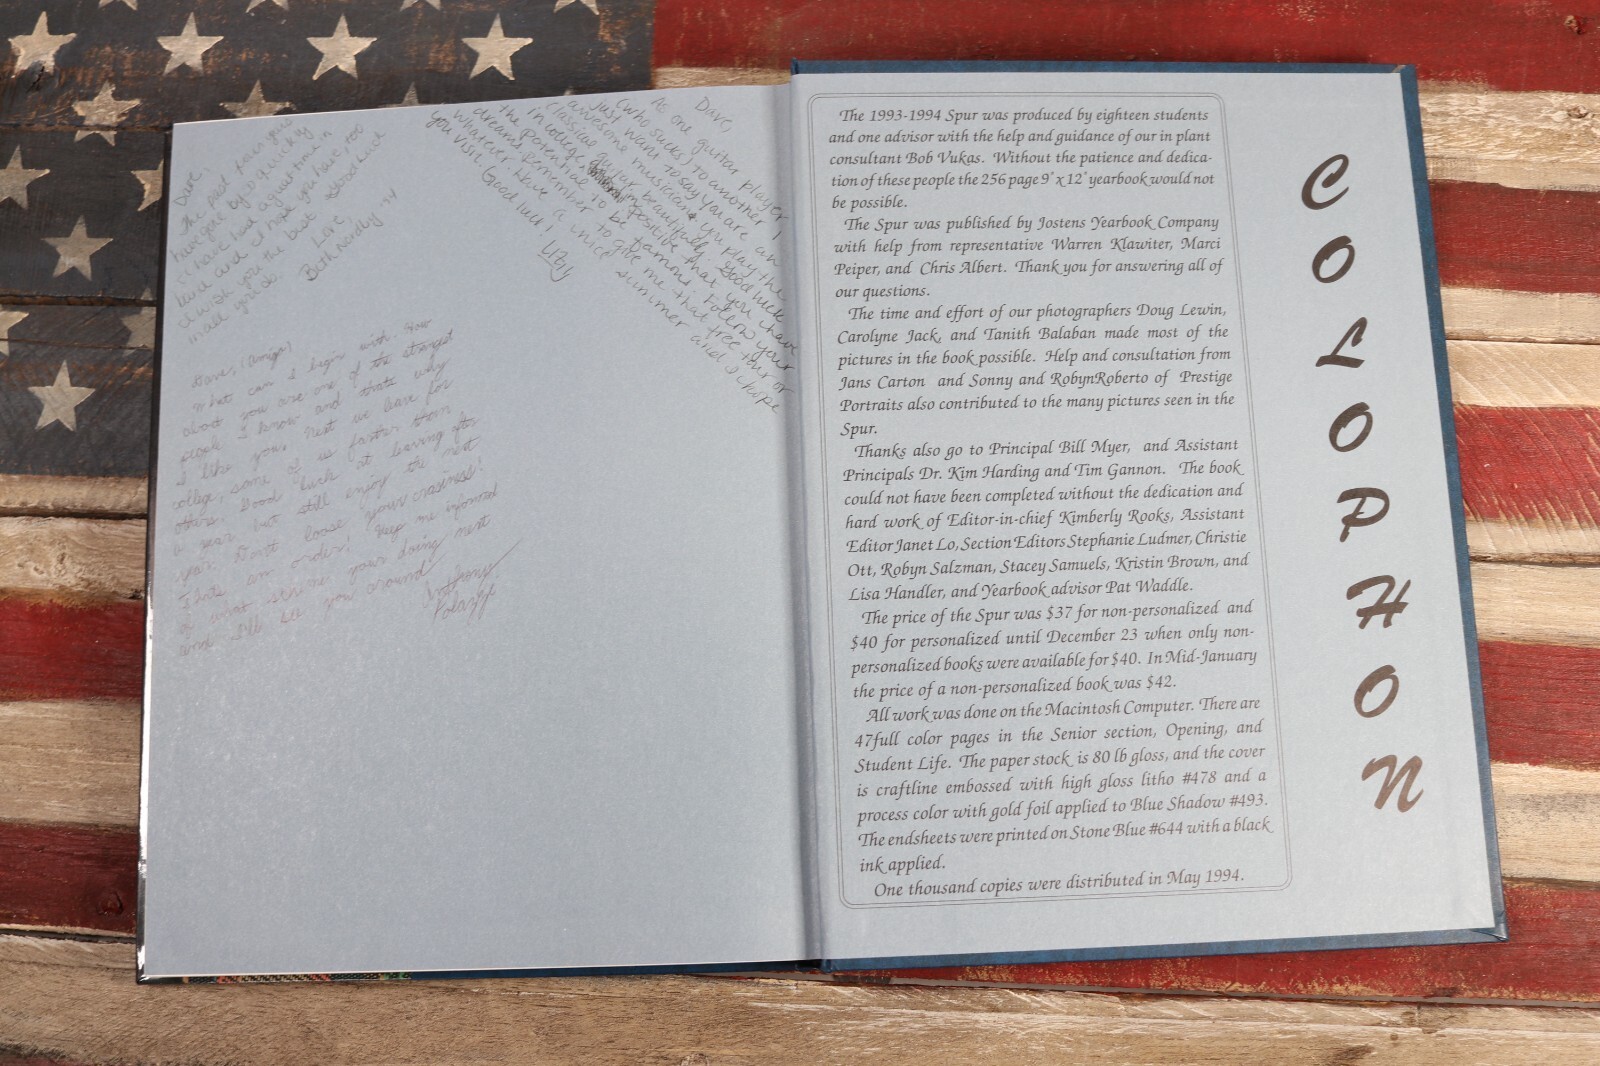 Dave,
The past four years
have gone by so quickly
I have had a great time in
and I hope you have, too
I wish you the best of good luck
in all you do.
Love
Beth
'94
Dave, (amigo)
What can I begin with. How
about you are one of the strangest
people I know and thats why
I like you. Next we leave for
college, some of us farther than
others. Good luck at leaving after
a year but still enjoy the next
year. Don't loose your crasiness!
Thats an order! Keep me informed
of what your doing next
and I'll see you around
Anthony
Polazzi
Dave,
As one guitar player
(who sucks) to another I
just want to say you are an
awesome musician & you play the
classical guitar beautifully. Good luck
in college &
the potential to be famous. Follow your
dreams & remember to give me that free tour or
whatever. Have a nice summer and I hope
you visit.
Good luck!
The 1993-1994 Spur was produced by eighteen students
and one advisor with the help and guidance of our in plant
consultant Bob Vukas. Without the patience and dedica-
tion of these people the 256 page 9" x 12" yearbook would not
be possible.
The Spur was published by Jostens Yearbook Company
with help from representative Warren Klawiter, Marci
Peiper, and Chris Albert. Thank you for answering all of
our questions.
The time and effort of our photographers Doug Lewin,
Carolyne Jack, and Tanith Balaban made most of the
pictures in the book possible. Help and consultation from
Jans Carton and Sonny and RobynRoberto of Prestige
Portraits also contributed to the many pictures seen in the
Spur.
Thanks also go to Principal Bill Myer, and Assistant
Principals Dr. Kim Harding and Tim Gannon. The book
could not have been completed without the dedication and
hard work of Editor-in-chief Kimberly Rooks, Assistant
Editor Janet Lo, Section Editors Stephanie Ludmer, Christie
Ott, Robyn Salzman, Stacey Samuels, Kristin Brown, and
Lisa Handler, and Yearbook advisor Pat Waddle.
The price of the Spur was $37 for non-personalized and
$40 for personalized until December 23 when only non-
personalized books were available for $40. In Mid-January
the price of a non-personalized book was $42.
All work was done on the Macintosh Computer. There are
47full color pages in the Senior section, Opening, and
Student Life. The paper stock is 80 lb gloss, and the cover
is craftline embossed with high gloss litho #478 and a
process color with gold foil applied to Blue Shadow #493.
The endsheets were printed on Stone Blue #644 with a black
ink applied.
One thousand copies were distributed in May 1994.
COLOPHON